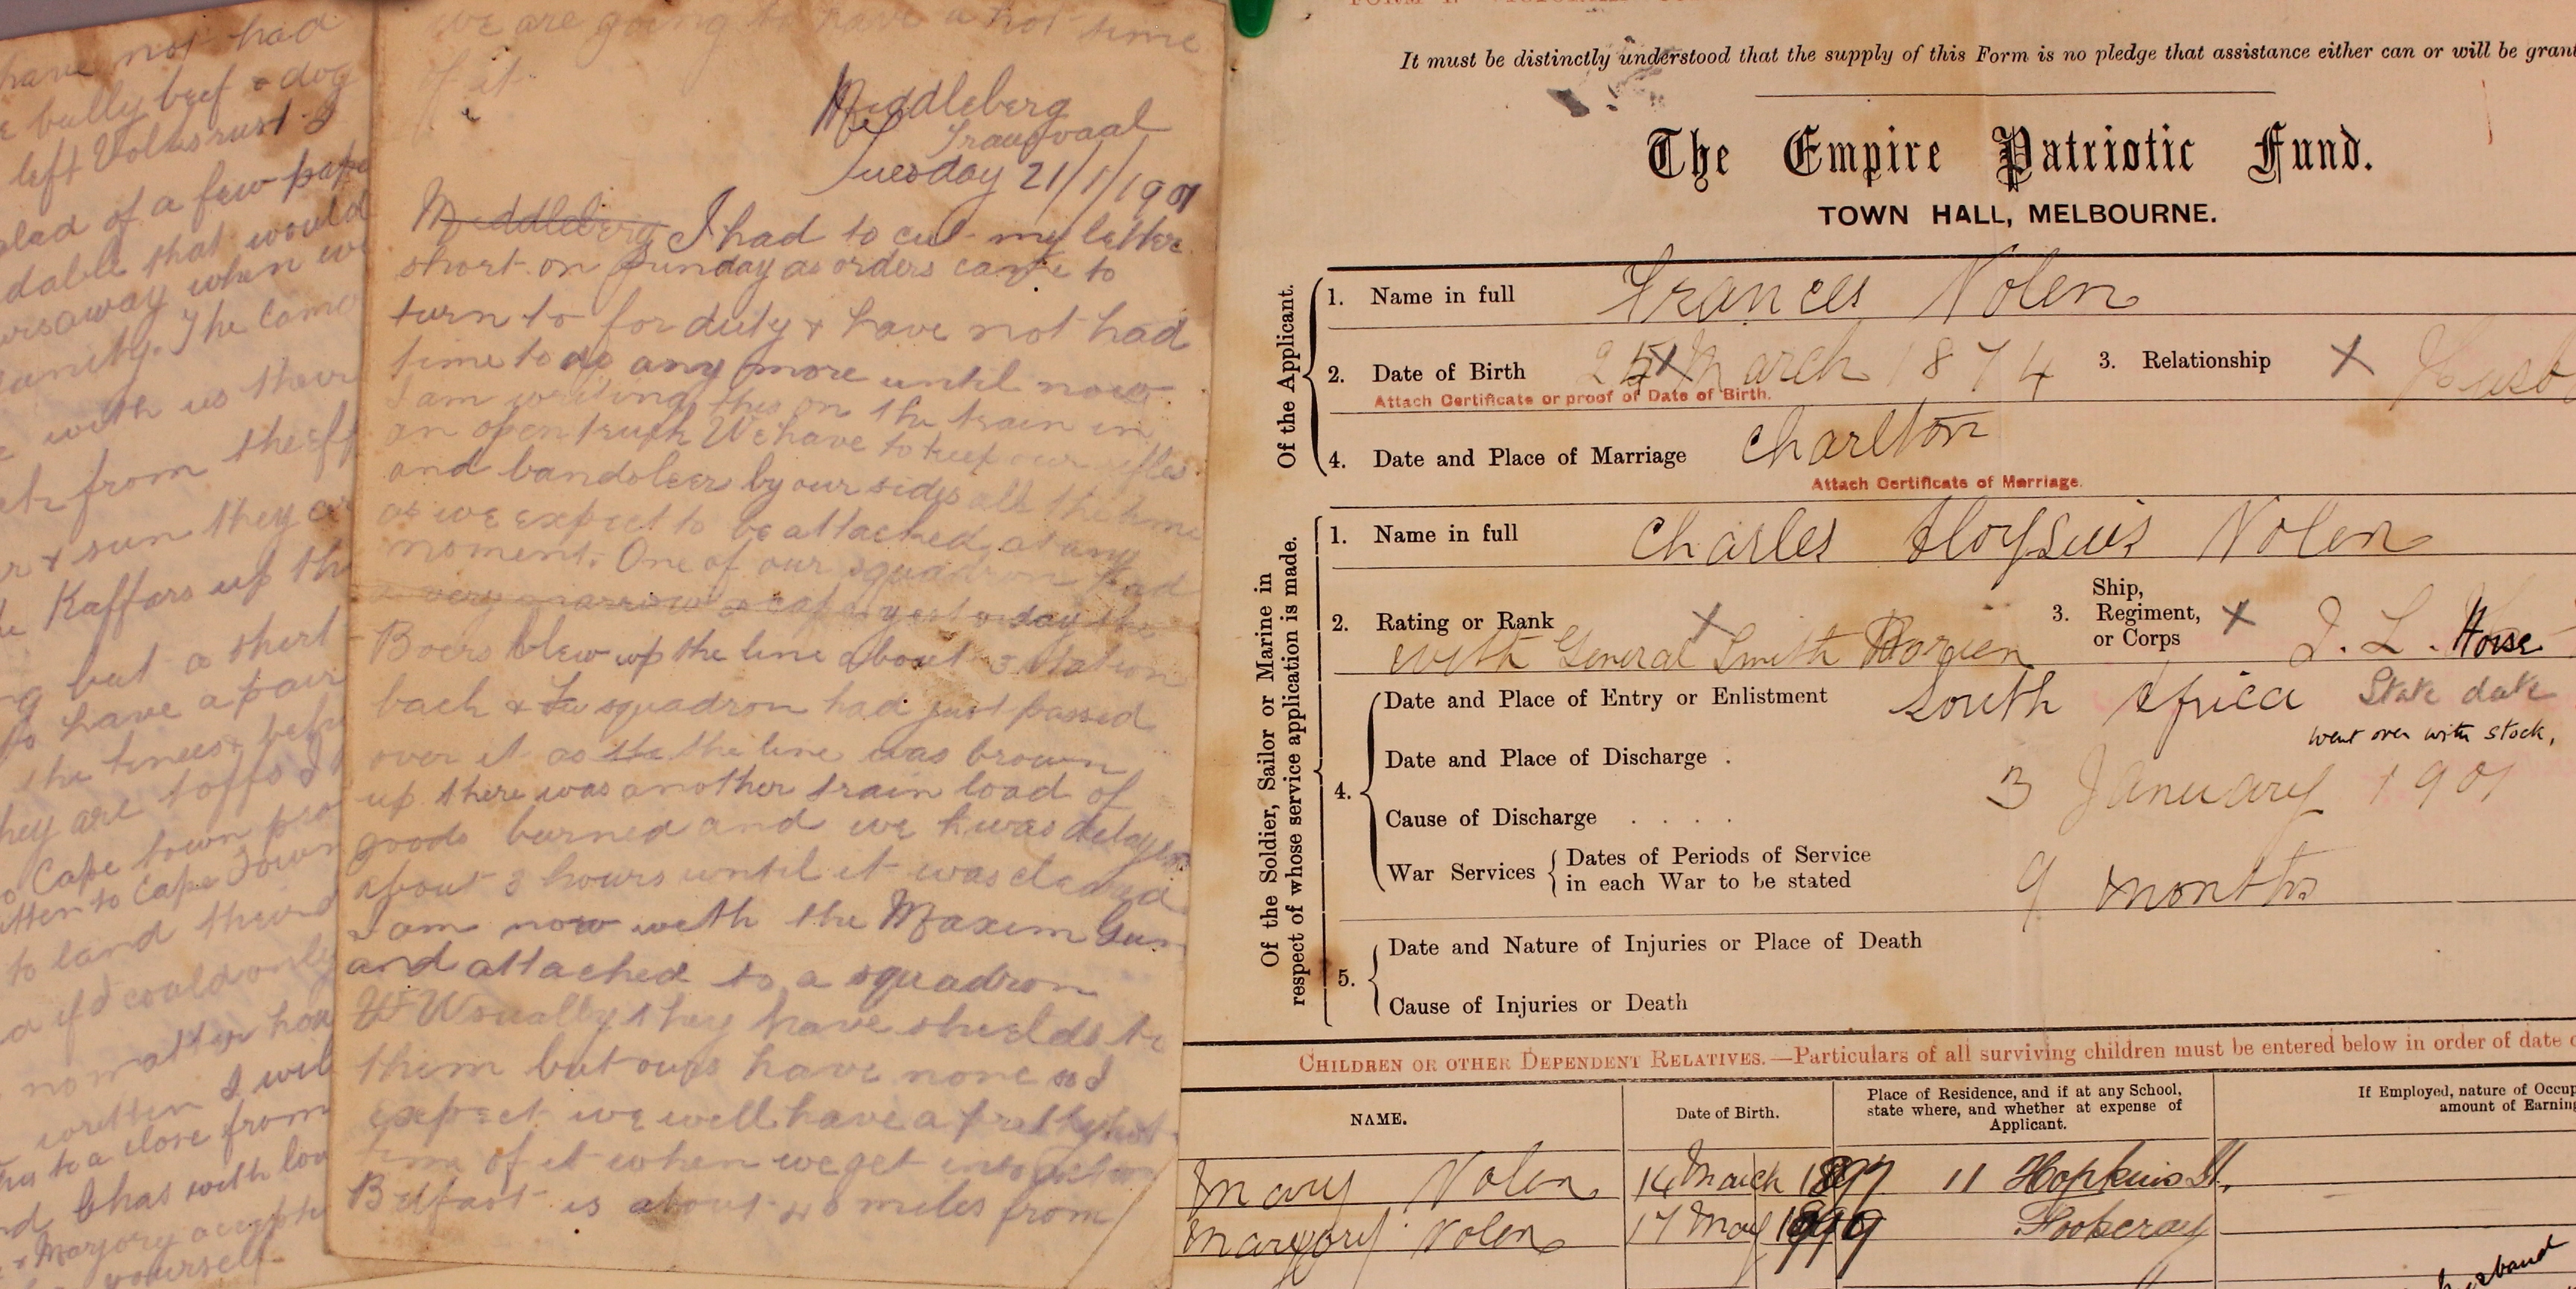 have not had
bully beef & dog
left Volksrust I
glad of a few pape
dable that would
away when we
The Camo
with us their
from the
r & sun they ar
Kaffars up th
but a shirt
to have a pair
the knees
hey are toffs I
Cape town
itten to Cape Town
to land
if I could only
no matter how
written I wil
to a close from
Chas with lov
& Marjory accept
yourself
we are going to have a hot time
of it
Middleberg
Transvaal
Tuesday 21/1/1901
Middleberg I had to cut my letter
short on Sunday as orders came to
turn to for duty & have not had
time to do any more until now
I am writing this on the train in
an open truck We have to keep our rifles
and bandoleer by our sides all the time
as we expect to be attacked at any
moment. One of our squadron had
a very narrow escape yesterday the
Boers blew up the line about 3 station
back & the squadron had just passed
over it as the the line was brown
up there was another train load of
goods burned and we was delayed
about 3 hours until it was cleared
I am now with the Maxim Gun
and attached to a squadron
Usually they have shields to
them but ours have none so I
expect we well have a pretty hot
time of it when we get into action
Belfast is about 40 miles from
It must be distinctly understood that the supply of this Form is no pledge that assistance either can or will be grant
The Empire Patriotic Fund.
TOWN HALL, MELBOURNE.
Of the Applicant.
1. Name in full Frances Nolen
2. Date of Birth 25 March 1874 3. Relationship X Husb
Attach Certificate or proof of Date of Birth.
4. Date and Place of Marriage Charlton
Attach Certificate of Marriage.
Of the Soldier, Sailor or Marine in
respect of whose service application is made.
1. Name in full Charles Aloysius Nolen
2. Rating or Rank X with General Smith Dorien
3. Ship, Regiment, or Corps X I. L. Horse
4. Date and Place of Entry or Enlistment South Africa State date
went over with stock,
Date and Place of Discharge .
3 January 1901
Cause of Discharge . . . .
War Services { Dates of Periods of Service
in each War to be stated 9 months
5. Date and Nature of Injuries or Place of Death
Cause of Injuries or Death
CHILDREN OR OTHER DEPENDENT RELATIVES.—Particulars of all surviving children must be entered below in order of date o
NAME. Date of Birth. Place of Residence, and if at any School, state where, and whether at expense of Applicant. If Employed, nature of Occup
amount of Earning
Mary Nolen 14 March 1897 11 Hopkins St.
Margory Nolen 17 May 1899 Footscray
husband